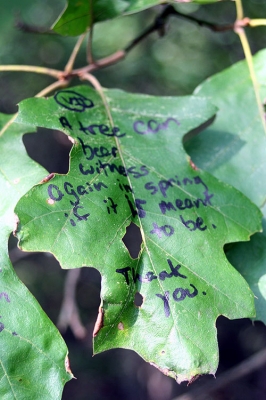 A tree can
bear
witness
again in spring
if it is meant
to be.
Thank
you.